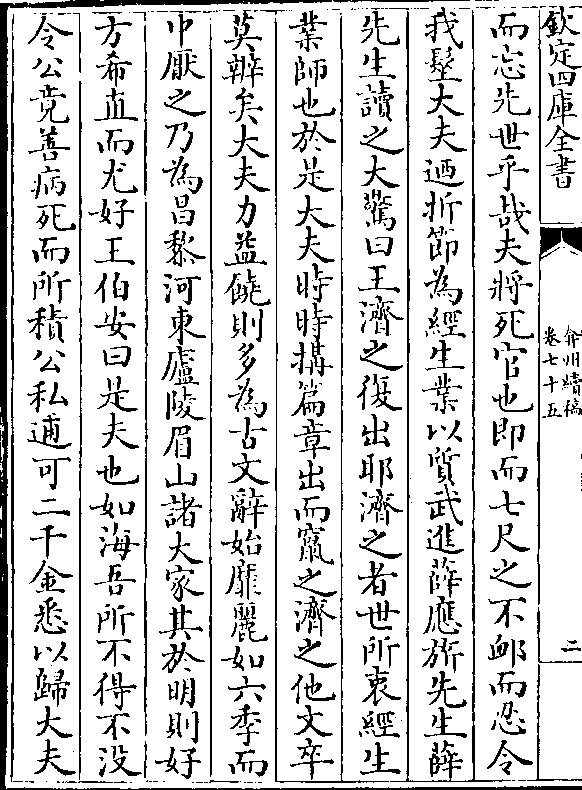 欽定四庫全書
弇州續稿
卷七十五
二
而忘先世乎哉夫將死官也即而七尺之不䘏而忍令
我髽大夫迺折節為經生業以質武進薛應旂先生薛
先生讀之大驚曰王濟之復出耶濟之者世所衷經生
業師也於是大夫時時搆篇章出而竄之濟之他文卒
莫辧矣大夫力益饒則多為古文辭始靡麗如六季而
中厭之乃為昌黎河東廬陵眉山諸大家其於明則好
方希直而尤好王伯安曰是夫也如海吾所不得不没
令公竟善病死而所積公私逋可二千金悉以歸大夫